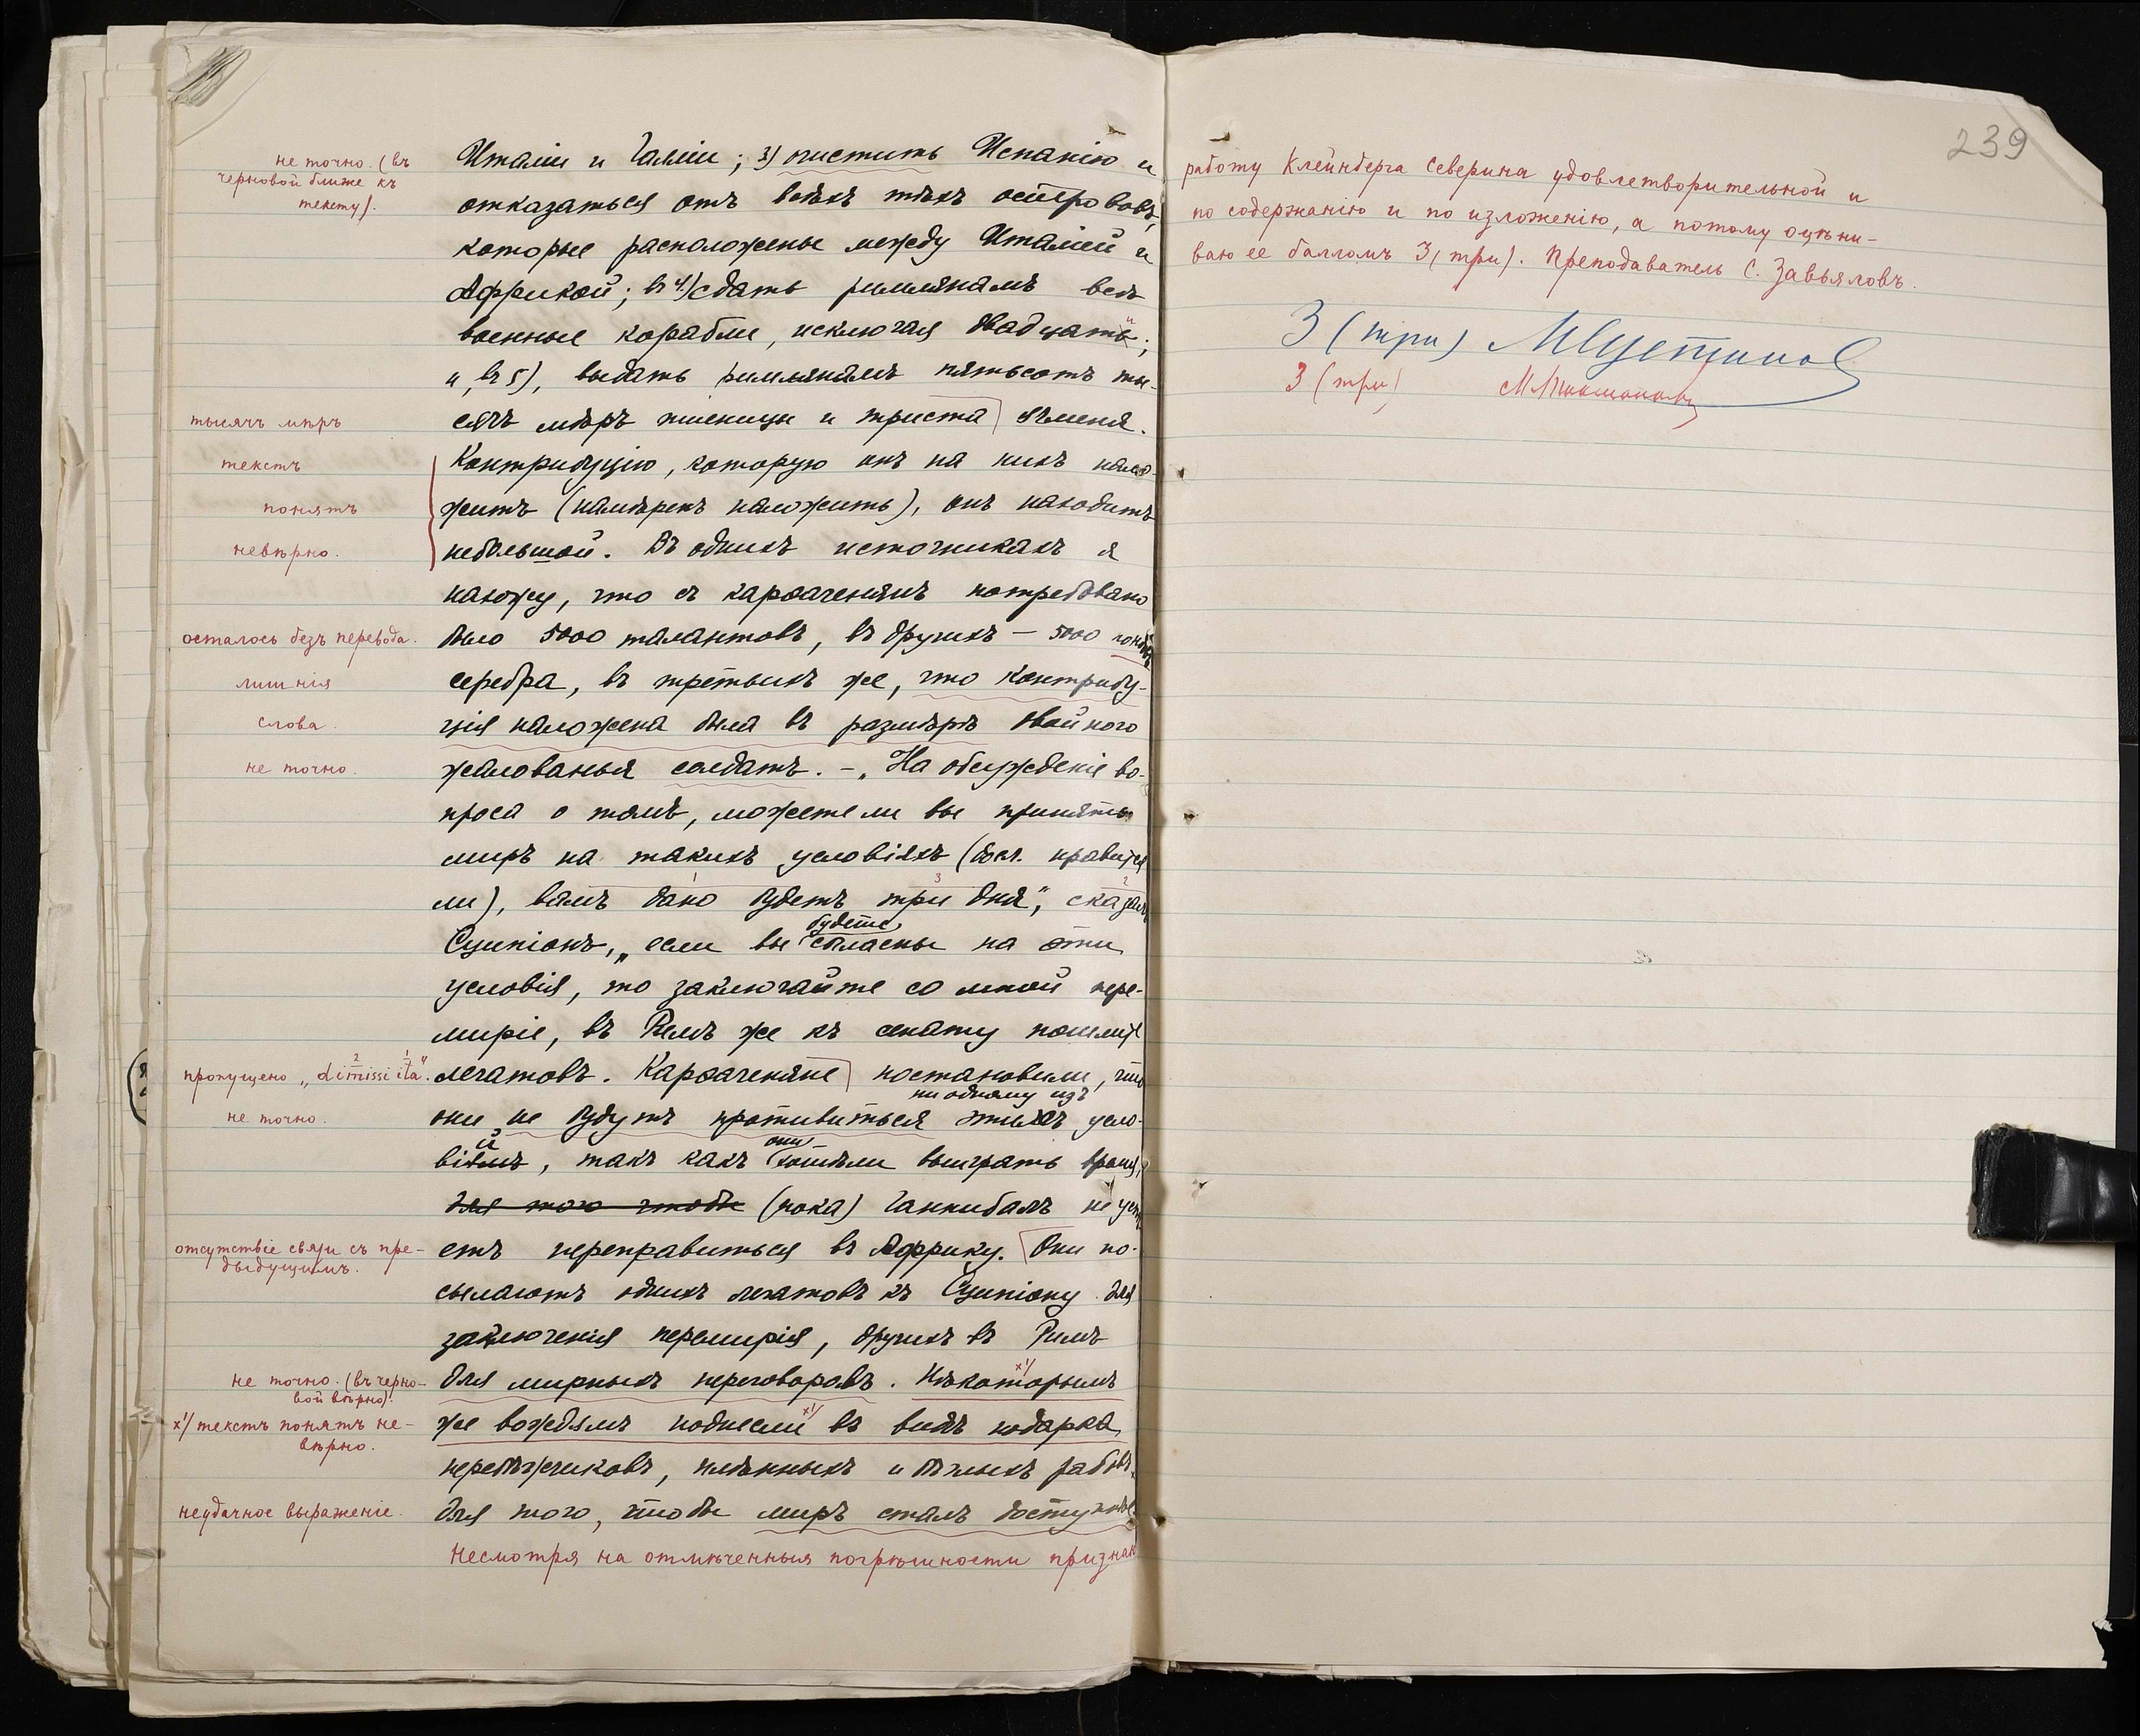 не точно. (въ
черновой ближе къ
тексту).
Италіи и Галліи; 3) очистить Испанію и
отказаться отъ всѣхъ тѣхъ острововъ,
которые расположены между Италіей и
Африкой; въ 4) сдать римлянамъ всѣ
военные корабли, исключая двадцати;
и, въ 5), выдать римлянамъ пятьсотъ ты-
тысячъ мѣръ
сячъ мѣръ пшеницы и триста ячменя.
текстъ
Контрибуцію, которую онъ на нихъ нало-
понятъ
житъ (намѣренъ наложить), онъ находитъ
невѣрно.
небольшой. Въ однихъ источникахъ я
нахожу, что съ карѳагенянъ потребовано
осталось безъ перевода.
было 5000 талантовъ, въ другихъ – 5000
лишнія
серебра, въ третьихъ же, что контрибу-
слова.
ція наложена была въ размѣрѣ двойного
не точно.
жалованья солдатъ. – „На обсужденіе во-
проса о томъ, можете ли вы принять
миръ на такихъ условіяхъ (досл. нравится
1 3 2
ли), вамъ дано будетъ три дня", сказалъ
будете
Сципіонъ, „если вы согласны на эти
условія, то заключайте со мной пере-
миріе, въ Римъ же къ сенату пошлите
2 1
пропущено „dimissi ita".
легатовъ. Карѳагеняне постановили, что
ни одному изъ
не точно.
они не будутъ противиться этихъ усло-
й они
вій, такъ какъ хотѣли выиграть время,
для того чтобы (пока) Ганнибалъ не успѣ
отсутствіе связи съ пре-
дыдущимъ.
етъ переправиться въ Африку. Они по-
сылаютъ однихъ легатовъ къ Сципіону для
заключенія перемирія, другихъ въ Римъ
не точно. (въ черно-
вой вѣрно).
для мирныхъ переговоровъ. Нѣкоторымъ
х/ текстъ понятъ не-
вѣрно.
же вождямъ поднесли въ видѣ подарка,
перебѣжчиковъ, плѣнныхъ и бѣглыхъ рабовъ,
неудачное выраженіе.
для того, чтобы миръ сталъ доступнѣе.
Несмотря на отмѣченныя погрѣшности признаю
239
работу Клейнберга Северина удовлетворительной и
по содержанію и по изложенію, а потому оцѣни-
ваю ее балломъ 3 (три). Преподаватель С. Завьяловъ.
3 (три)
3 (три)